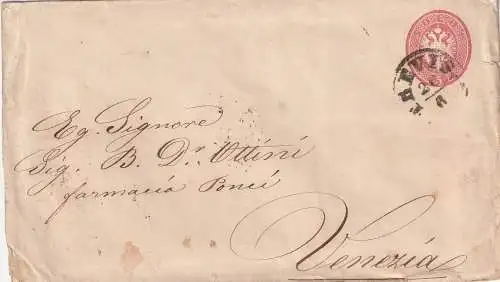 TREVIS
Eg. Signore
Sig. B. Dr. Ottini
farmacia Ponci
Venezia